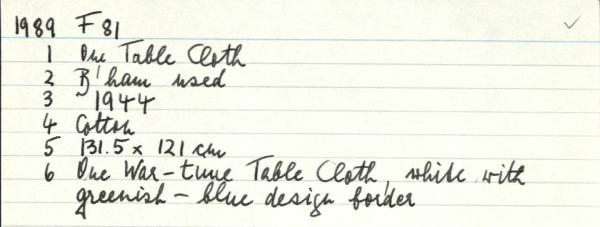 1989 F 81
1 One Table Cloth
2 B'ham used
3 ~1944
4 Cotton
5 131.5 x 121 cm
6 One War-time Table Cloth, white with
greenish - blue design border